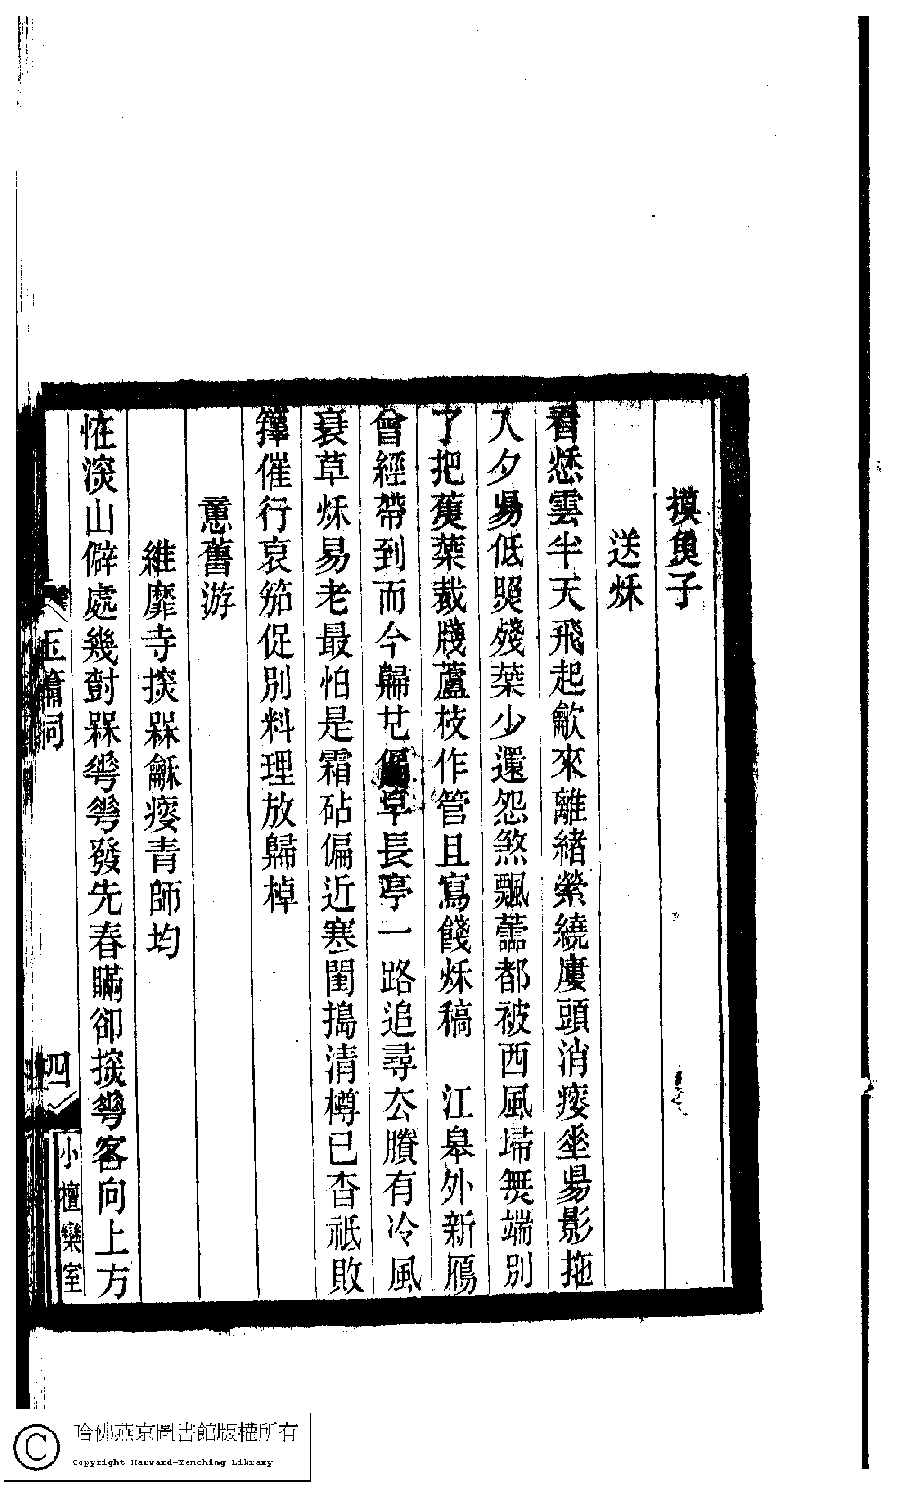 摸魚子
送秌
看愁雲半天飛起歘來離緒縈繞廔頭消瘦坐昜影拖
人夕昜低煚殘葉少還怨煞飄蘦都被西風埽無端別
了把蕉葉裁牋蘆枝作管且寫餞秌稿　江皋外新鴈
曾經帶到而今歸去偏早長亭一路追尋去賸有冷風
衰草秌易老最怕是霜砧偏近寒閨搗清樽已杳祇敗
籜催行哀笳促別料理放歸棹
憶舊游
維靡寺探槑龢瘦青師均
恠深山僻處幾尌槑䔢䔢發先春瞞卻探䔢客向上方
玉簫詞
四
小檀欒室
哈佛燕京圖書館版權所有
Copyright Harvard-Yenching Library